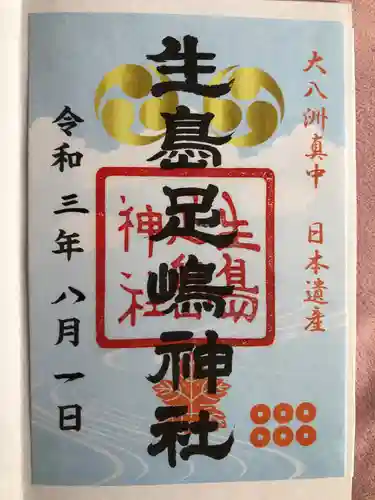 大八洲真中 日本遺産
生島足嶋神社
生島
足島
神社
令和三年八月一日